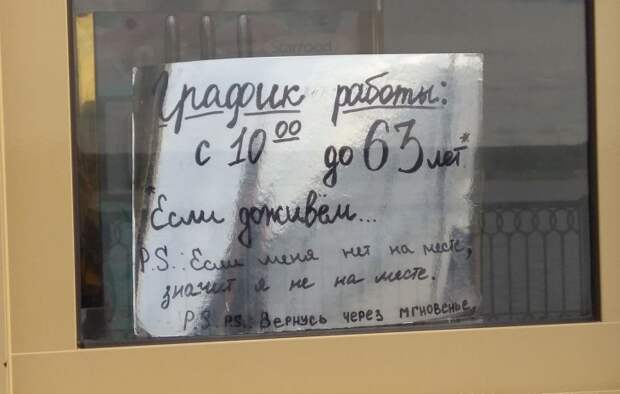 Starfood
График работы:
с 10 00 до 63 лет*
*Если доживём...
P.S.: Если меня нет на месте,
значит я не на месте.
P.S. P.S.: Вернусь через мгновенье